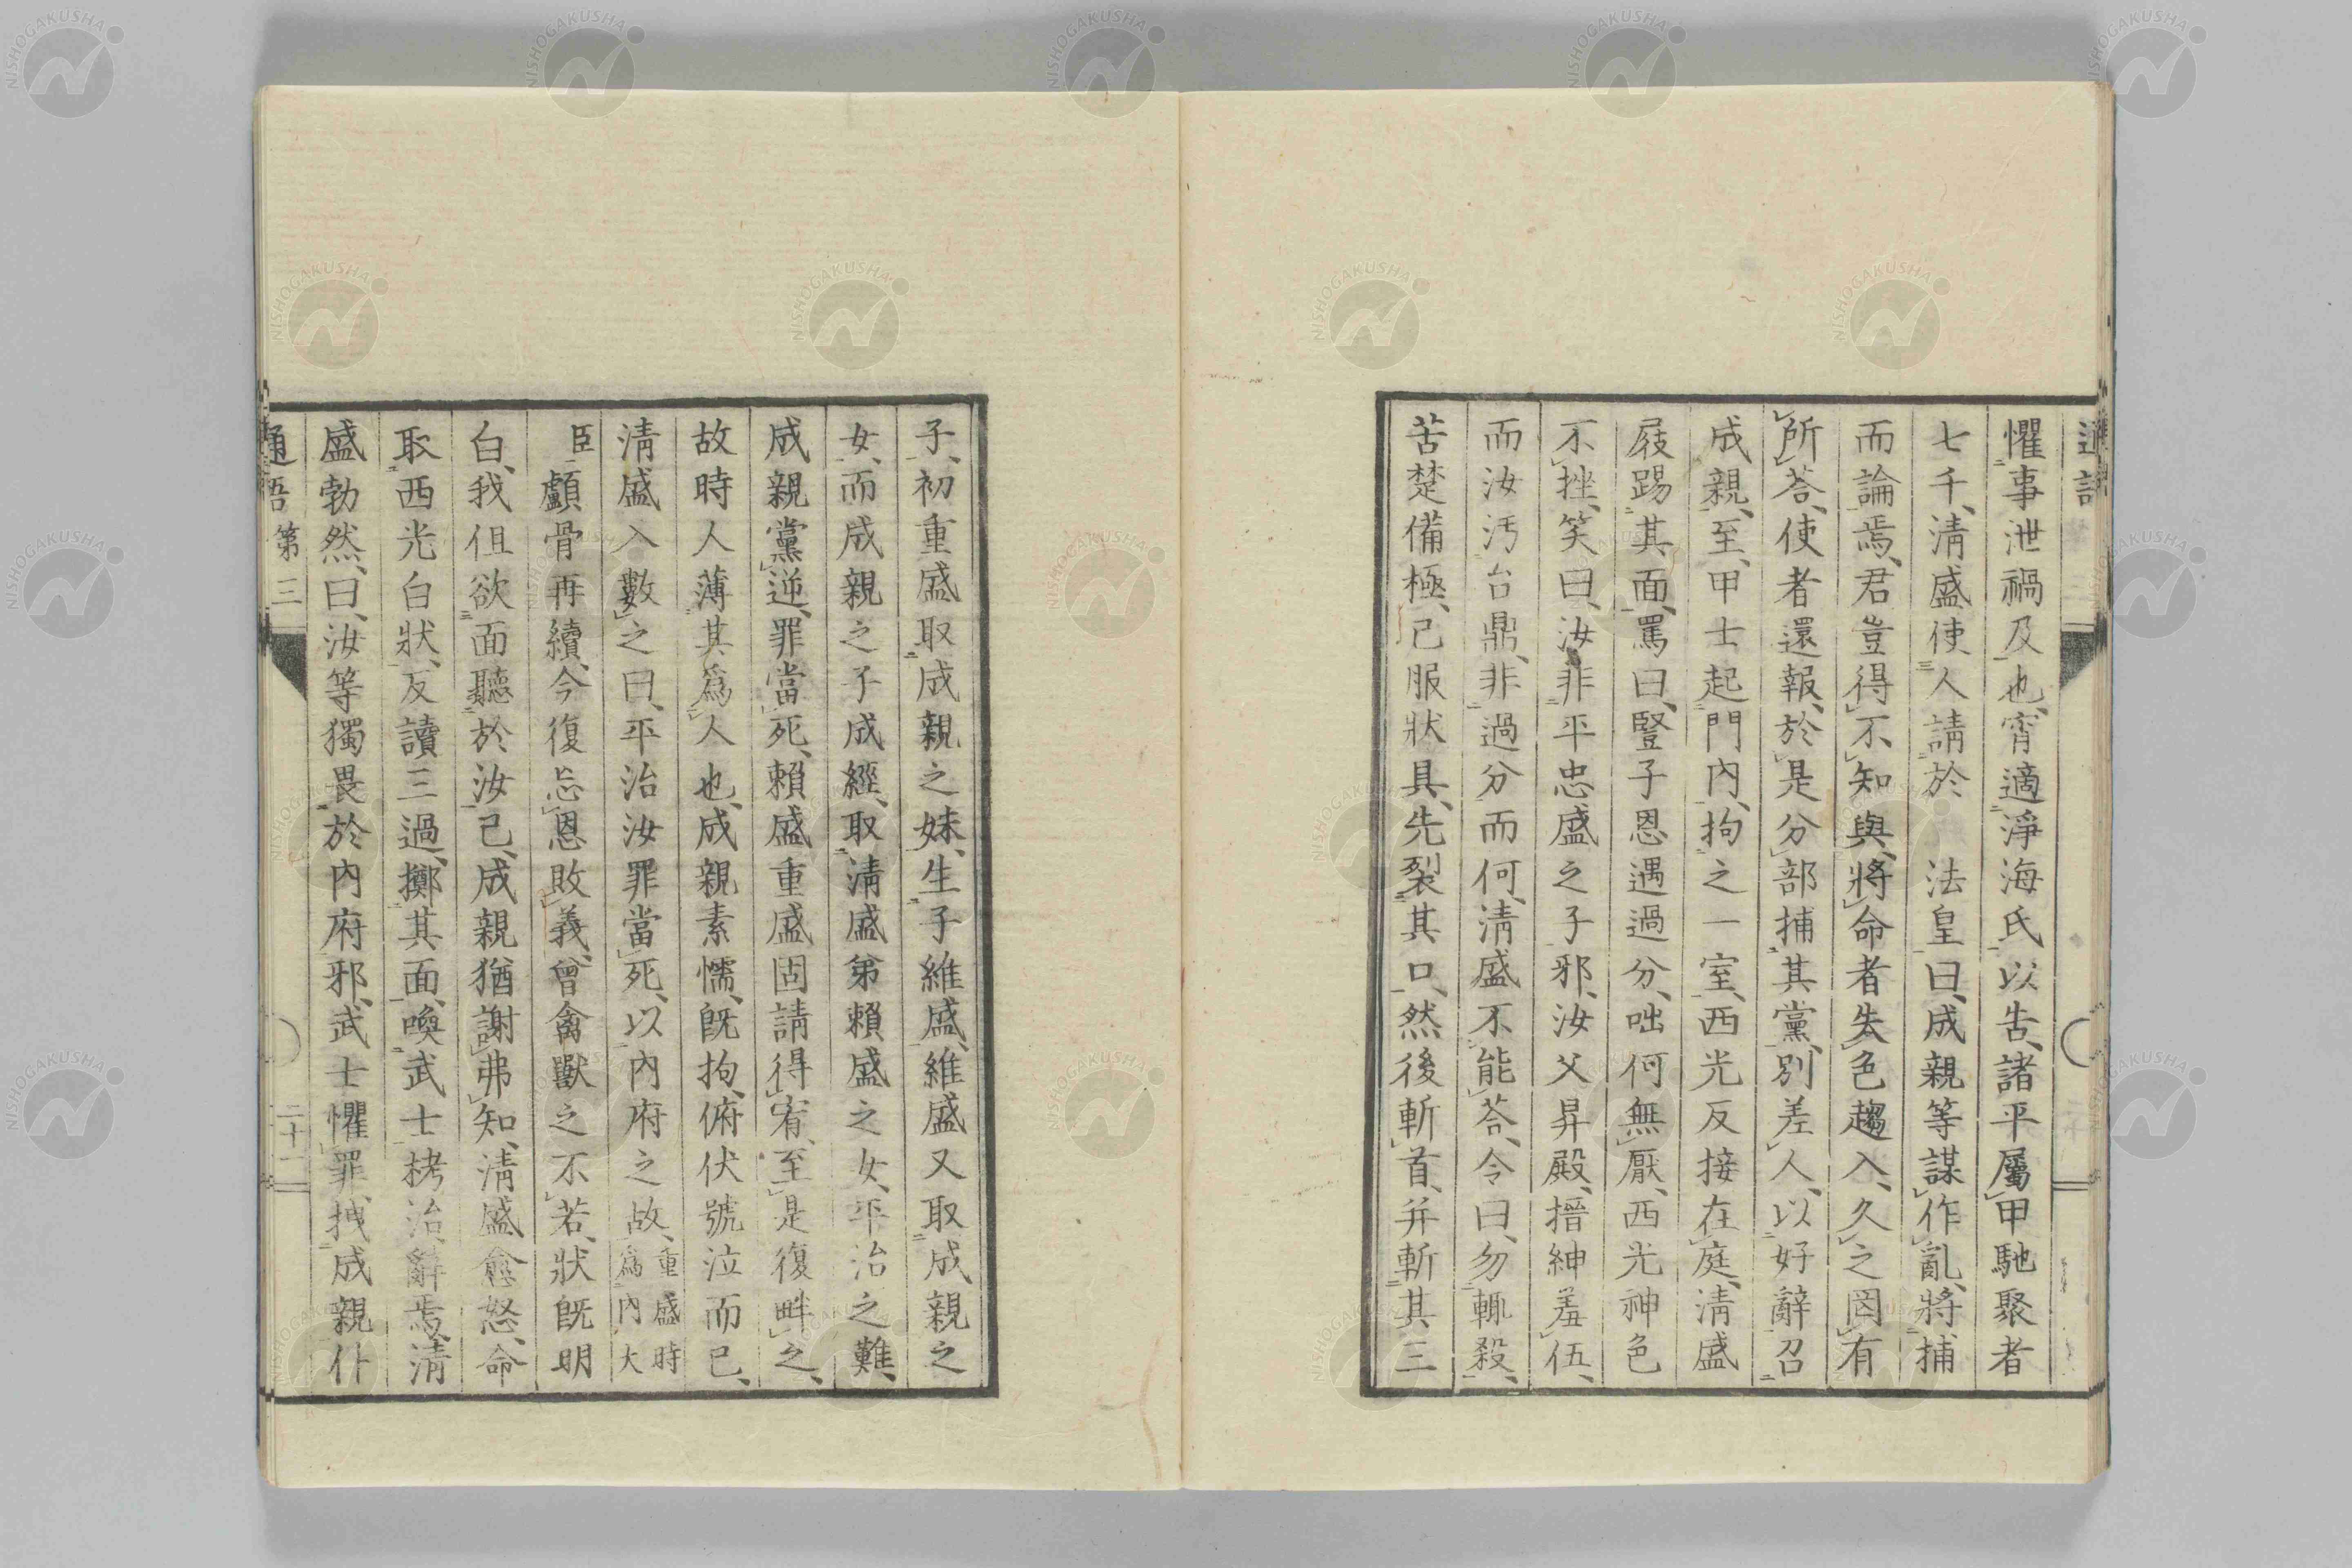 懼事泄禍及也、宵適淨海氏以告、諸平屬甲馳聚者
七千、淸盛使人請於　法皇曰、成親等謀作亂、將捕
而論焉、君豈得不知與、將命者失色趨入、久之罔有
所荅、使者還報、於是分部捕其黨、別差人、以好辭召
成親、至、甲士起門內、拘之一室、西光反接在庭、淸盛
屐踢其面、罵曰、豎子恩遇過分、咄何無厭、西光神色
不挫、笑曰、汝非平忠盛之子邪、汝父昇殿、搢紳羞伍、
而汝汚台鼎、非過分而何、淸盛不能荅、令曰、勿輒殺、
苦楚備極、已服狀具、先裂其口、然後斬首、幷斬其三
子、初重盛取成親之妹、生子維盛、維盛又取成親之
女、而成親之子成經、取淸盛弟賴盛之女、平治之難、
成親黨逆、罪當死、賴盛重盛固請得宥、至是復畔之、
故時人薄其爲人也、成親素懦、旣拘、俯伏號泣而已、
淸盛入數之曰、平治汝罪當死、以內府之故、重盛時爲內大
臣顱骨再續、今復忘恩敗義、曾禽獸之不若、狀旣明
白、我但欲面聽於汝已、成親猶謝弗知、淸盛愈怒、命
取西光白狀、反讀三過、擲其面、喚武士拷治、辭焉、淸
盛勃然、曰、汝等獨畏於內府邪、武士懼罪、拽成親仆
通語　第三　二十二
NISHOGAKUSHA